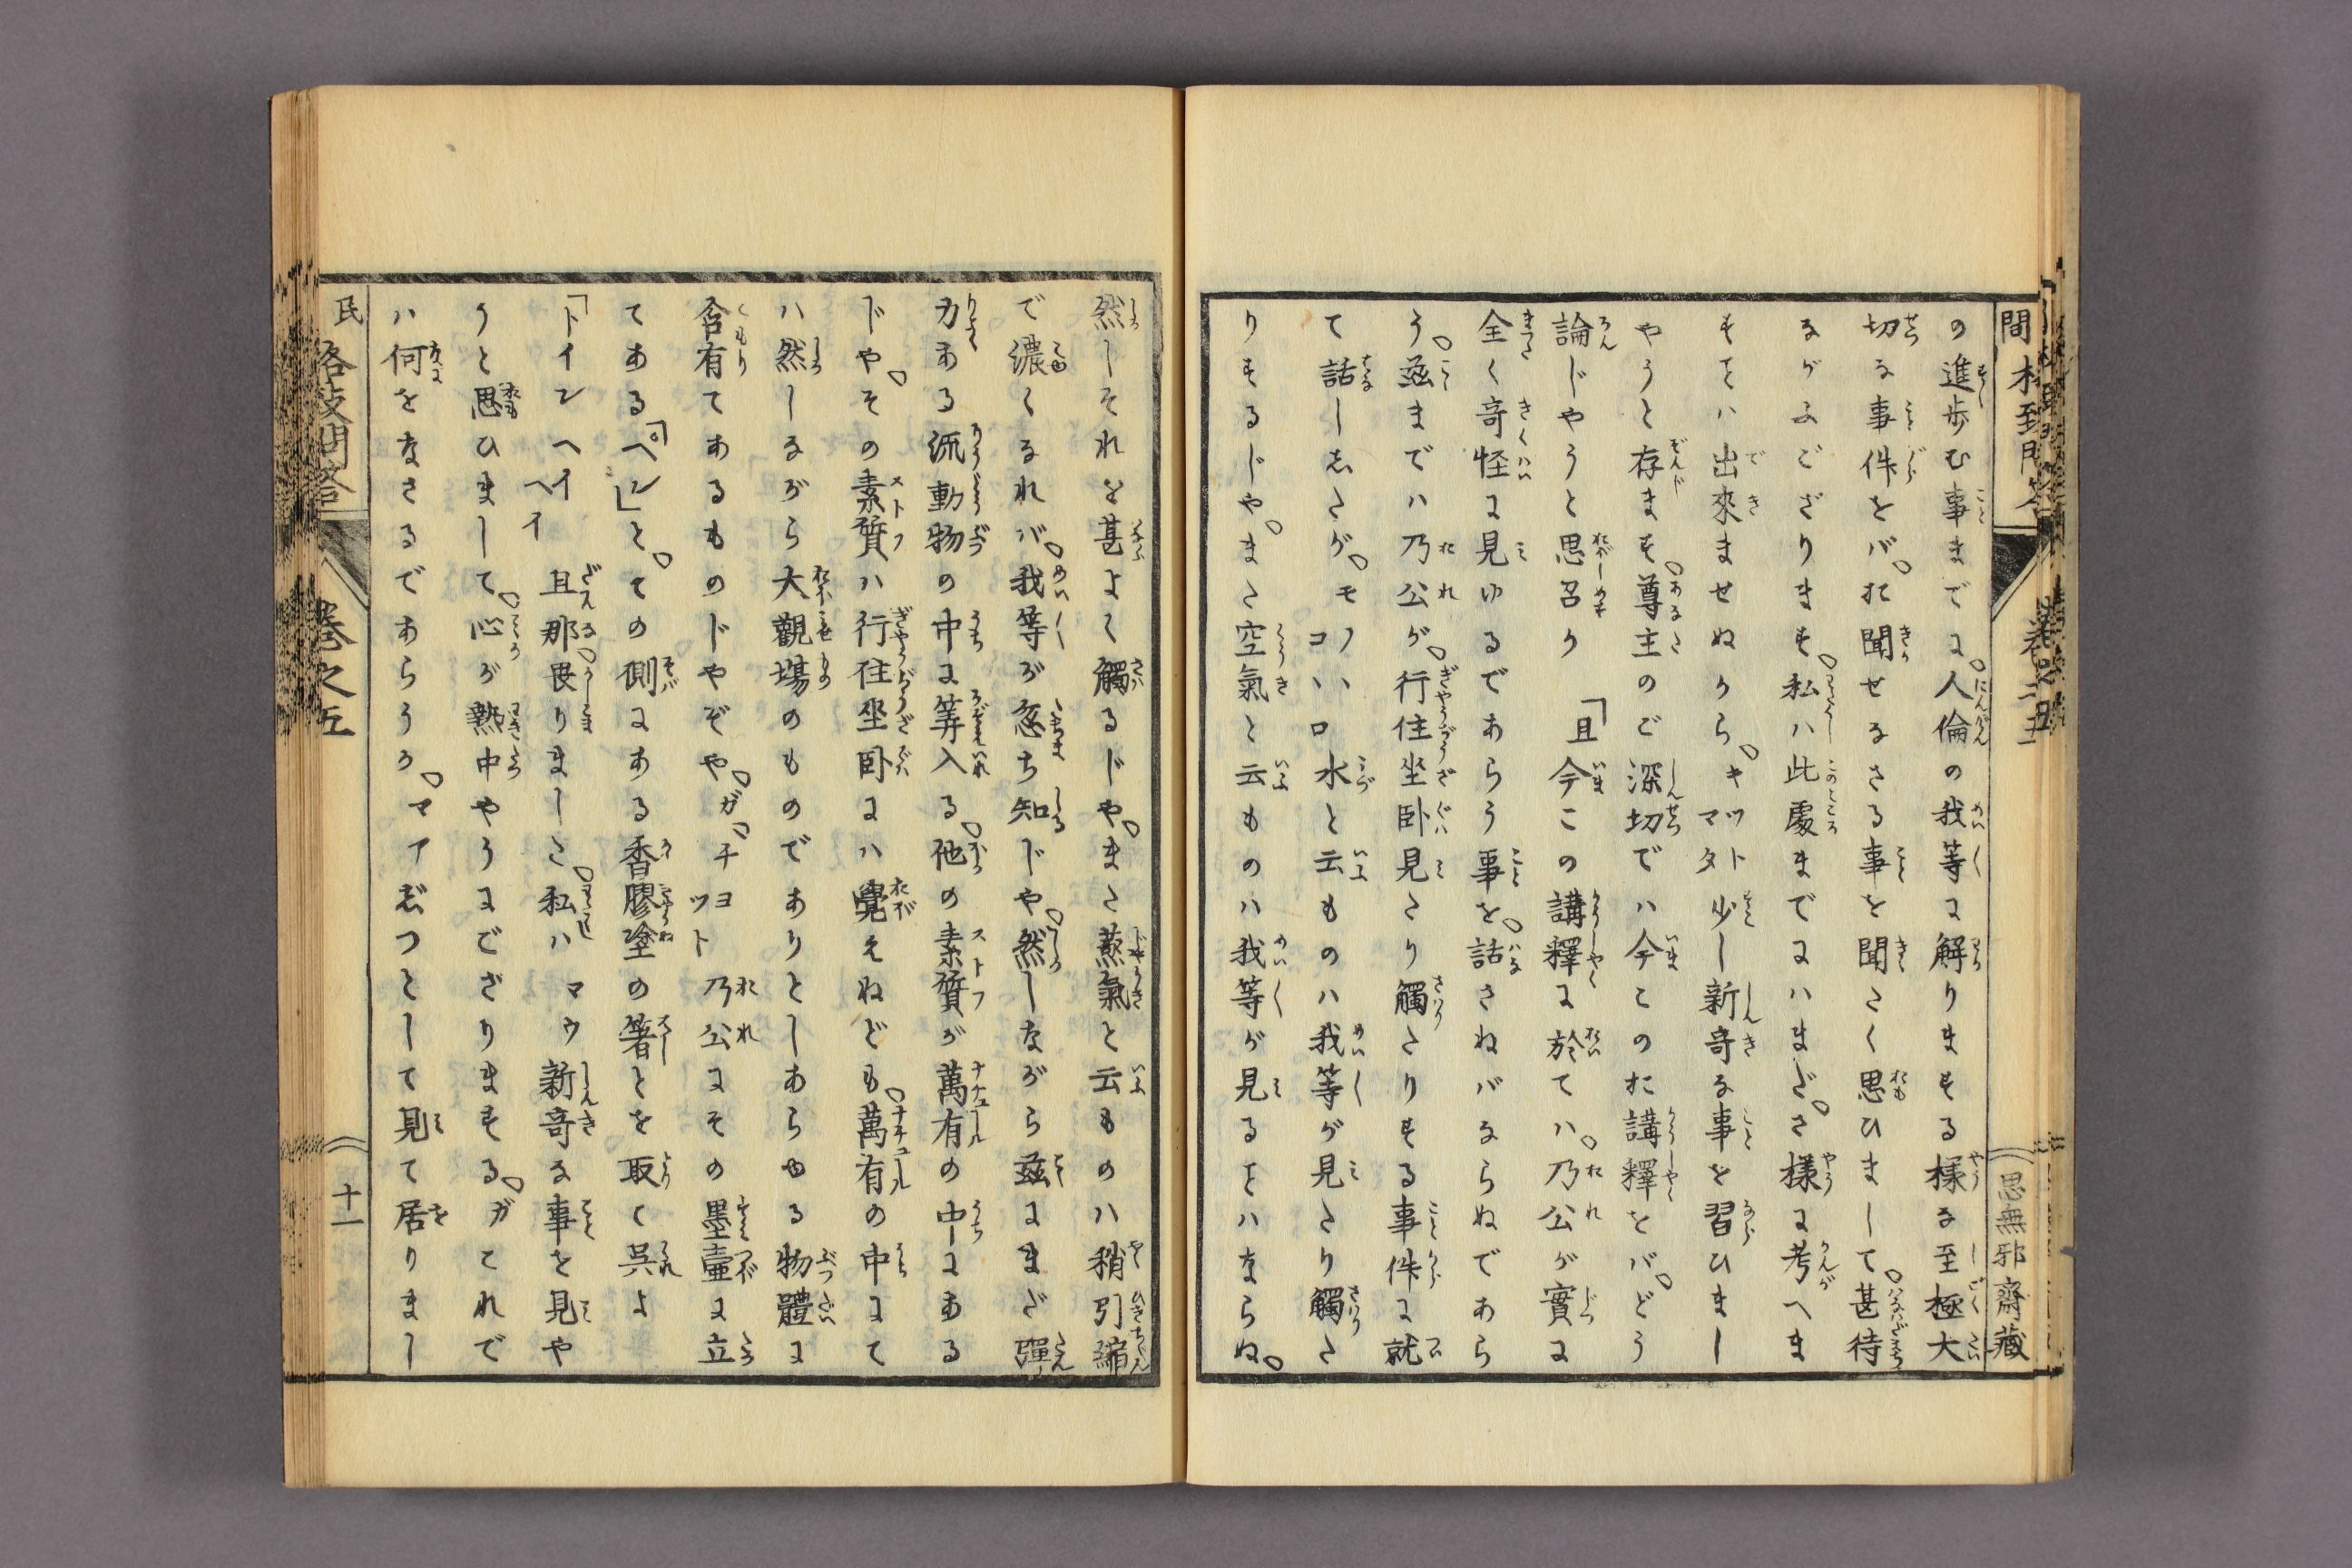 の進歩む事までに、人倫の我等に解りまする様な至極大
切な事件をバ、お聞せなさる事を聞たく思ひまして、甚待
ながふござりまする、私ハ此處までにハまだ、さ様に考へま
することハ出來ませぬから、キット マタ 少し新奇な事を習ひまし
やうと存ます、尊主のご深切でハ今このお講釋をバ、どう
論じやうと思召か 「且今この講釋に於てハ、乃公が實に
全く奇怪に見ゆるであらう事を、話さねバならぬであら
う、茲までハ乃公が、行住坐卧見たり觸たりする事件に就
て話しゝたが、モノ コハ、 水と云ものハ我等が見たり觸た
りするじや、また空氣と云ものハ我等が見ることハならぬ、
間木至問答
思無邪齋藏
然しそれを甚よく觸るじや、また蒸氣と云ものハ稍引縮
で濃くなれバ、我等が忽ち知じや、然しながら茲にまだ彈
力ある流動物の中に筭入る、他の素質が萬有の中にある
じや、その素質ハ行住坐卧にハ覺えねども、萬有の中にて
ハ然しながら大觀場のものでありとしあらゆる物體に
含有てあるものじやぞや、ガ、チヨット 乃公にその墨壷に立
てある「ペン」と、ての側にある香膠塗の箸とを取て呉よ
「ハイ ヘイ ヘイ 且那畏りました、私ハ マウ 新奇な事を見や
うと思ひまして、心が熱中やうにござりまする、ガこれで
ハ何をなさるであらうか、マア志つとして見て居りまし
民
各支問答
巻之五
十一